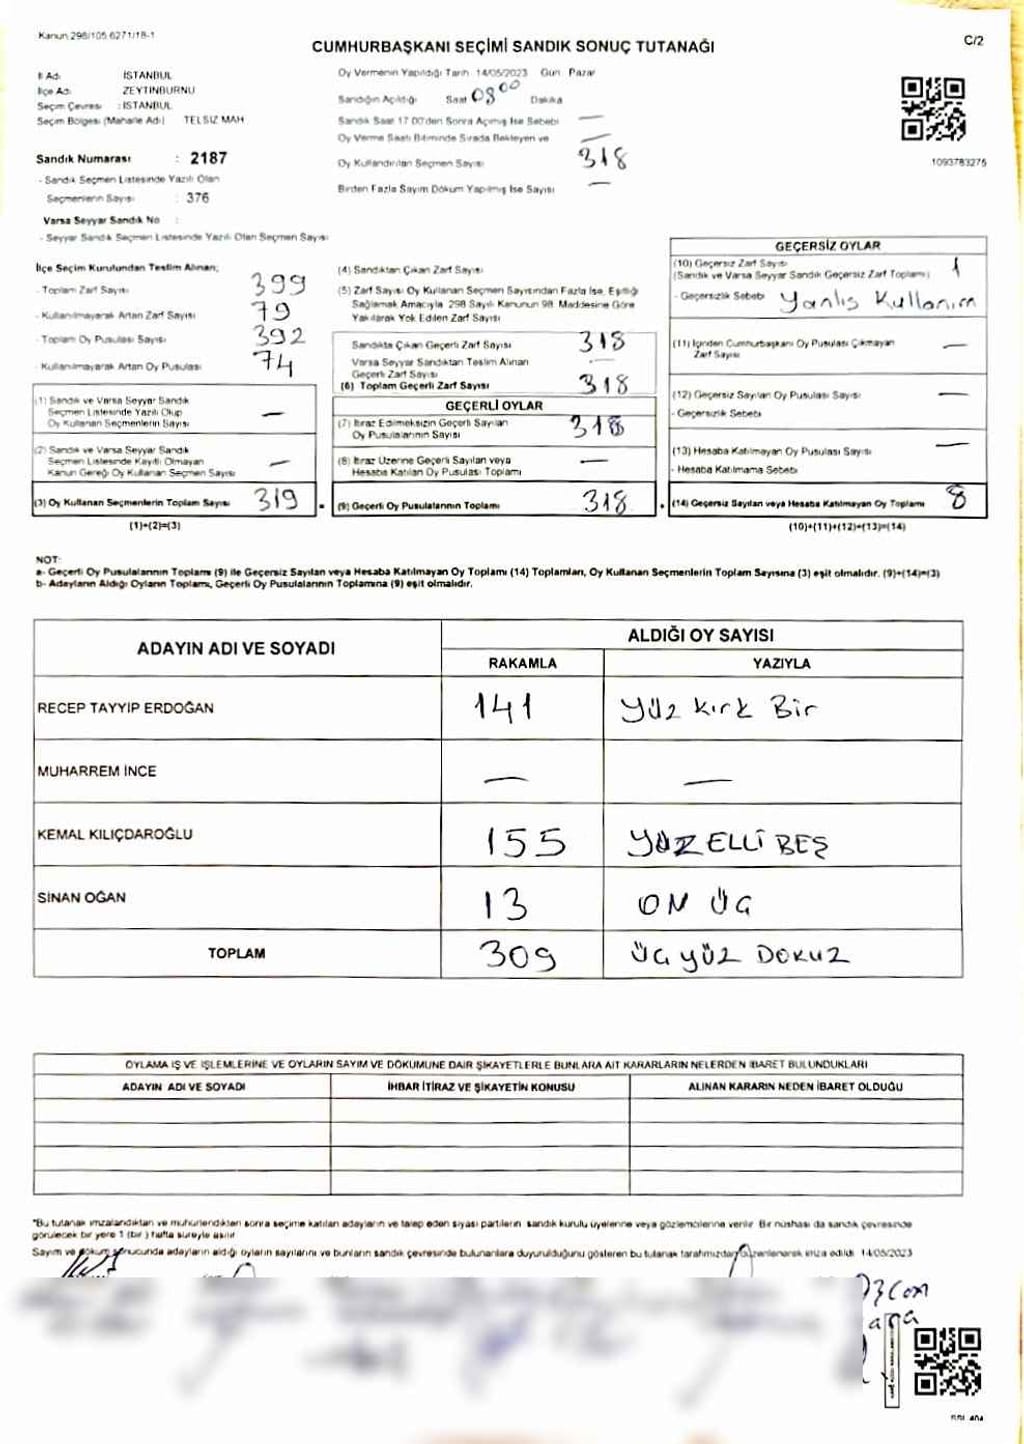 Kanun:298/105.6271/18-1
C/2
CUMHURBAŞKANI SEÇİMİ SANDIK SONUÇ TUTANAĞI
İl Adı İSTANBUL
İlçe Adı ZEYTİNBURNU
Seçim Çevresi : İSTANBUL
Seçim Bölgesi (Mahalle Adı) TELSİZ MAH
Sandık Numarası : 2187
- Sandık Seçmen Listesinde Yazılı Olan
Seçmenlerin Sayısı : 376
Varsa Seyyar Sandık No :
- Seyyar Sandık Seçmen Listesinde Yazılı Olan Seçmen Sayısı
Oy Vermenin Yapıldığı Tarih 14/05/2023 Gün Pazar
Sandığın Açıldığı Saat 08 00 Dakika
Sandık Saat 17.00'den Sonra Açılmış İse Sebebi —
Oy Verme Saati Bitiminde Sırada Bekleyen ve
Oy Kullandırılan Seçmen Sayısı 318
Birden Fazla Sayım Döküm Yapılmış İse Sayısı —
1093783275
İlçe Seçim Kurulundan Teslim Alınan;
- Toplam Zarf Sayısı 399
- Kullanılmayarak Artan Zarf Sayısı 79
- Toplam Oy Pusulası Sayısı 392
- Kullanılmayarak Artan Oy Pusulası 74
(1) Sandık ve Varsa Seyyar Sandık
Seçmen Listesinde Yazılı Olup
Oy Kullanan Seçmenlerin Sayısı —
(2) Sandık ve Varsa Seyyar Sandık
Seçmen Listesinde Kayıtlı Olmayan
Kanun Gereği Oy Kullanan Seçmen Sayısı —
(3) Oy Kullanan Seçmenlerin Toplam Sayısı 319
(1)+(2)=(3)
(4) Sandıktan Çıkan Zarf Sayısı
(5) Zarf Sayısı Oy Kullanan Seçmen Sayısından Fazla İse, Eşitliği
Sağlamak Amacıyla 298 Sayılı Kanunun 98. Maddesine Göre
Yakılarak Yok Edilen Zarf Sayısı
Sandıkta Çıkan Geçerli Zarf Sayısı 318
Varsa Seyyar Sandıktan Teslim Alınan
Geçerli Zarf Sayısı —
(6) Toplam Geçerli Zarf Sayısı 318
GEÇERLİ OYLAR
(7) İtiraz Edilmeksizin Geçerli Sayılan
Oy Pusulalarının Sayısı 318
(8) İtiraz Üzerine Geçerli Sayılan veya
Hesaba Katılan Oy Pusulası Toplamı —
= (9) Geçerli Oy Pusulalarının Toplamı 318
GEÇERSİZ OYLAR
(10) Geçersiz Zarf Sayısı
(Sandık ve Varsa Seyyar Sandık Geçersiz Zarf Toplamı) 1
- Geçersizlik Sebebi Yanlış Kullanım
(11) İçinden Cumhurbaşkanı Oy Pusulası Çıkmayan
Zarf Sayısı —
(12) Geçersiz Sayılan Oy Pusulası Sayısı —
- Geçersizlik Sebebi
(13) Hesaba Katılmayan Oy Pusulası Sayısı —
- Hesaba Katılmama Sebebi
+ (14) Geçersiz Sayılan veya Hesaba Katılmayan Oy Toplamı 8
(10)+(11)+(12)+(13)=(14)
NOT:
a- Geçerli Oy Pusulalarının Toplamı (9) ile Geçersiz Sayılan veya Hesaba Katılmayan Oy Toplamı (14) Toplamları, Oy Kullanan Seçmenlerin Toplam Sayısına (3) eşit olmalıdır. (9)+(14)=(3)
b- Adayların Aldığı Oyların Toplamı, Geçerli Oy Pusulalarının Toplamına (9) eşit olmalıdır.
ADAYIN ADI VE SOYADI ALDIĞI OY SAYISI
RAKAMLA YAZIYLA
RECEP TAYYİP ERDOĞAN 141 Yüz Kırk Bir
MUHARREM İNCE — —
KEMAL KILIÇDAROĞLU 155 YÜZ ELLİ BEŞ
SİNAN OĞAN 13 ON ÜÇ
TOPLAM 309 ÜÇ YÜZ DOKUZ
OYLAMA İŞ VE İŞLEMLERİNE VE OYLARIN SAYIM VE DÖKÜMÜNE DAİR ŞİKAYETLERLE BUNLARA AİT KARARLARIN NELERDEN İBARET BULUNDUKLARI
ADAYIN ADI VE SOYADI İHBAR İTİRAZ VE ŞİKAYETİN KONUSU ALINAN KARARIN NEDEN İBARET OLDUĞU
*Bu tutanak imzalandıktan ve mühürlendikten sonra seçime katılan adayların ve talep eden siyasi partilerin sandık kurulu üyelerine veya gözlemcilerine verilir. Bir nüshası da sandık çevresinde
görülecek bir yere 1 (bir) hafta süreyle asılır
Sayım ve döküm sonucunda adayların aldığı oyların sayılarını ve bunların sandık çevresinde bulunanlara duyurulduğunu gösteren bu tutanak tarafımızdan düzenlenerek imza edildi. 14/05/2023